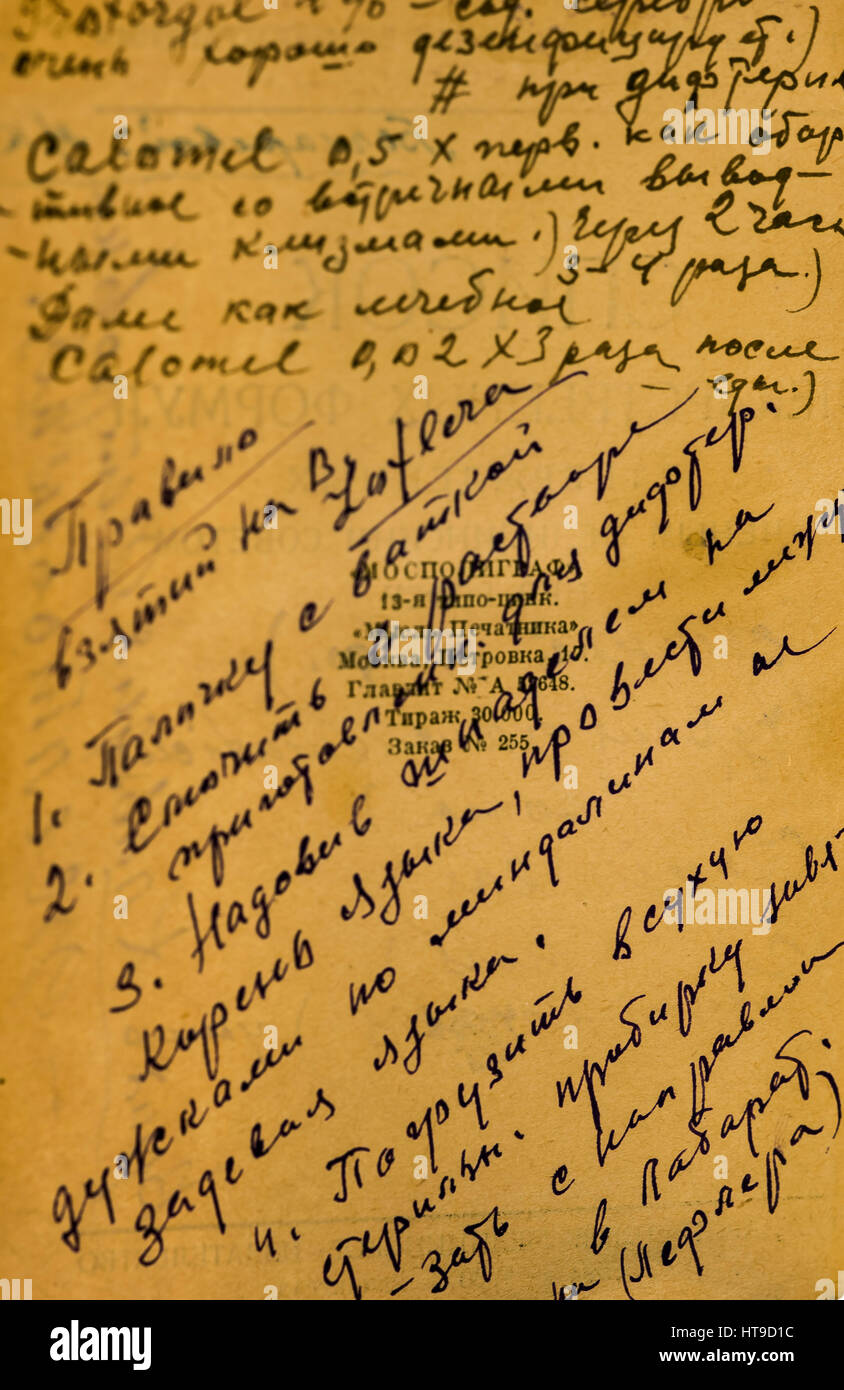 очень хорошо дезенфицирует.)
# при
Calomel 0,5 X перв. как абор
-тивное со встречными вывод-
-ными клизмами.) Через 2 часа
3-4 раза.)
Дале как лечебное
Calomel 0,02 X 3 раза после
еды.)
Правило
взятий на B. Loflera
1. Палочку с ваткой
2. Смочить в растворе
приготовлен. для дифтер.
3. Надовив шпаделем на
корень языка, провести между
дужками по миндалинам не
задевая языка.
4. Погрузить в сухую
стерильн. пробирку завя
-зать с направлен
в Лабарат.
на (Лефлера)
МОСПОЛИГРАФ
13-я типо-цинк.
«Мысль Печатника»
Москва, Петровка, 17.
Главлит № А
Тираж 30.000.
Заказ № 255.
ФОРМУЛ
alamy
Image ID: HT9D1C
www.alamy.com